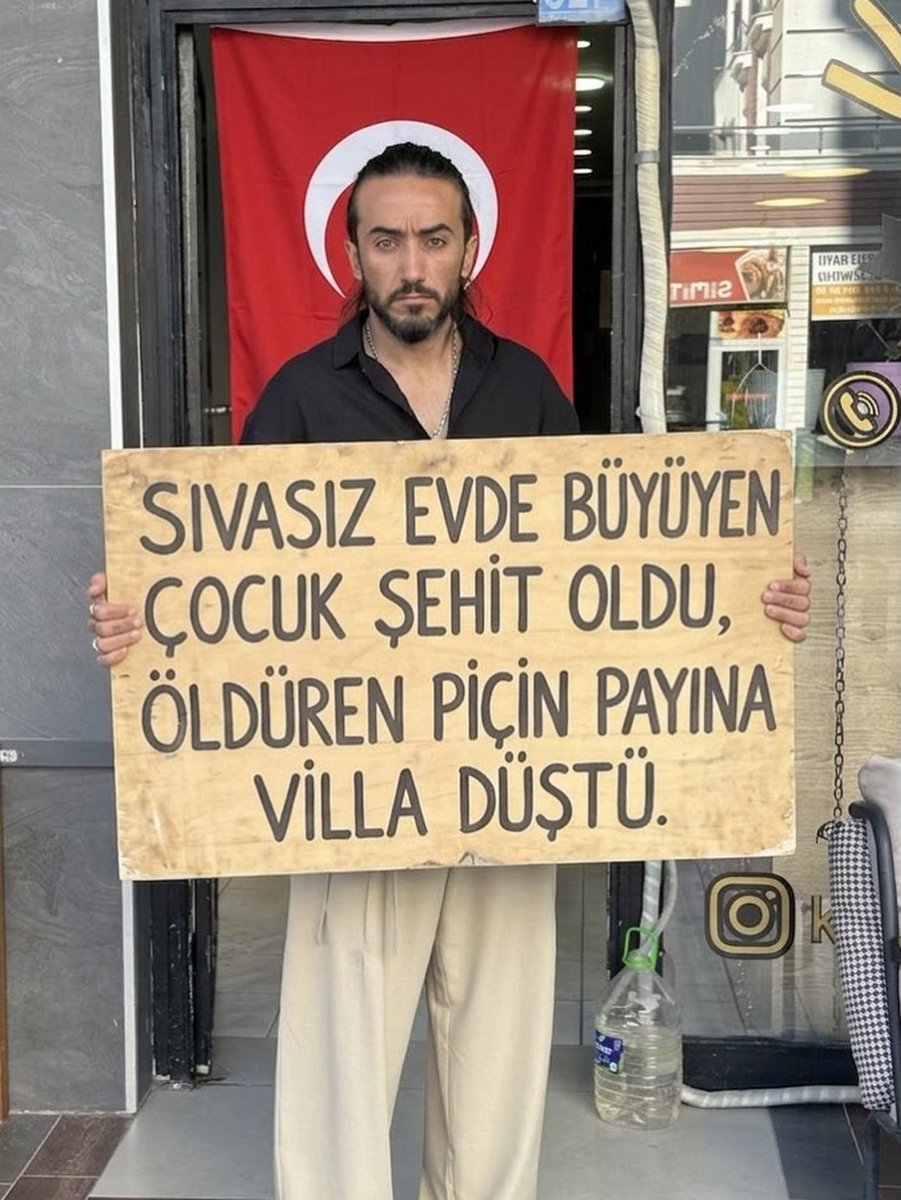 SIVASIZ EVDE BÜYÜYEN
ÇOCUK ŞEHİT OLDU,
ÖLDÜREN PİÇİN PAYINA
VİLLA DÜŞTÜ.
SIMIT